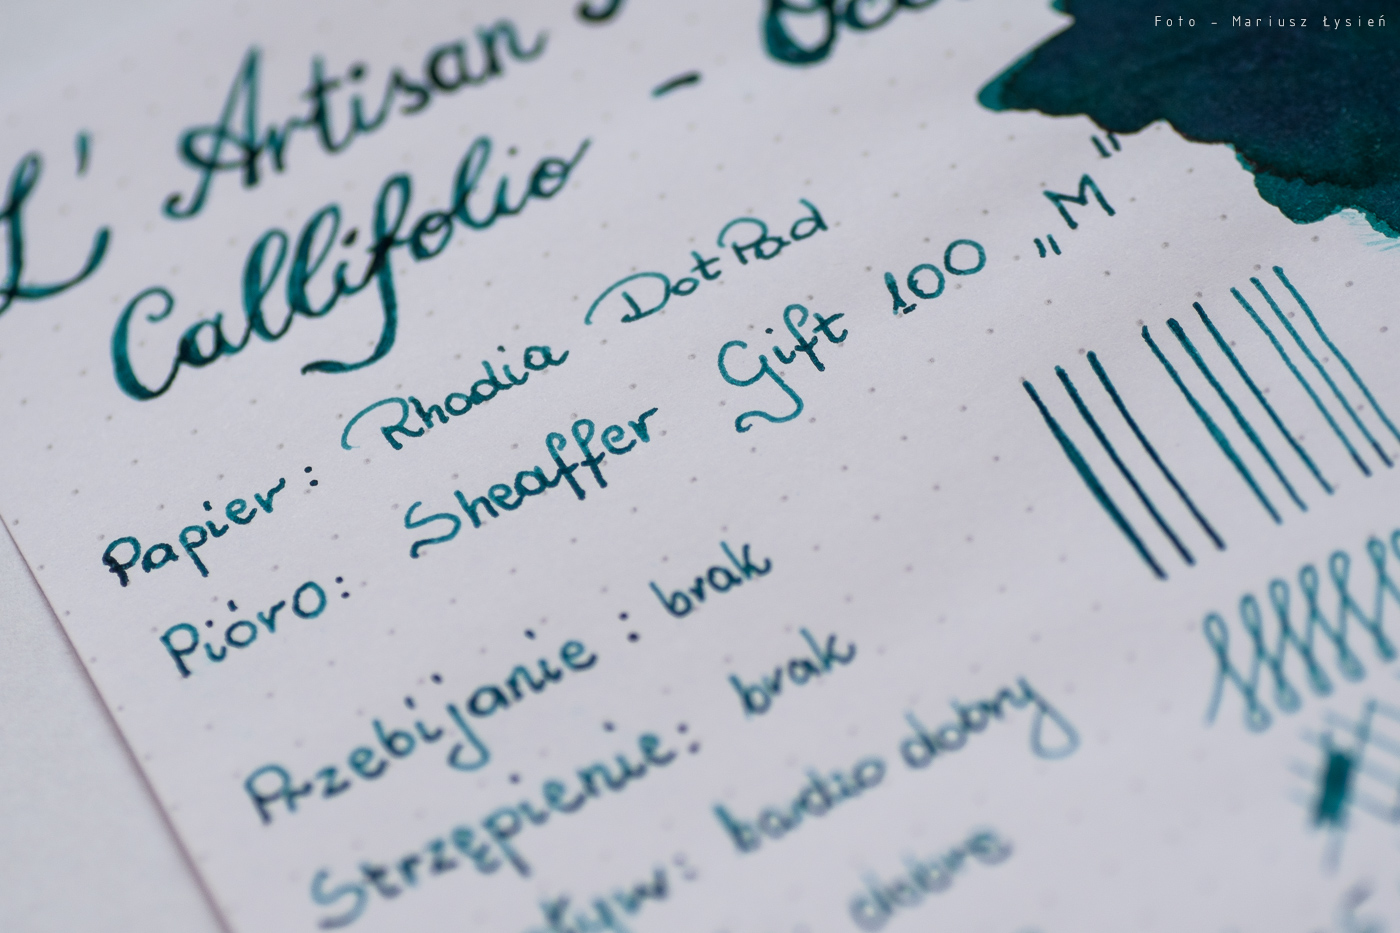 Foto - Mariusz Łysień
L' Artisan
Callifolio -
Papier: Rhodia DotPad
Pióro: Sheaffer Gift 100 „M"
Przebijanie: brak
Strzępienie: brak
bardzo dobry
dobre